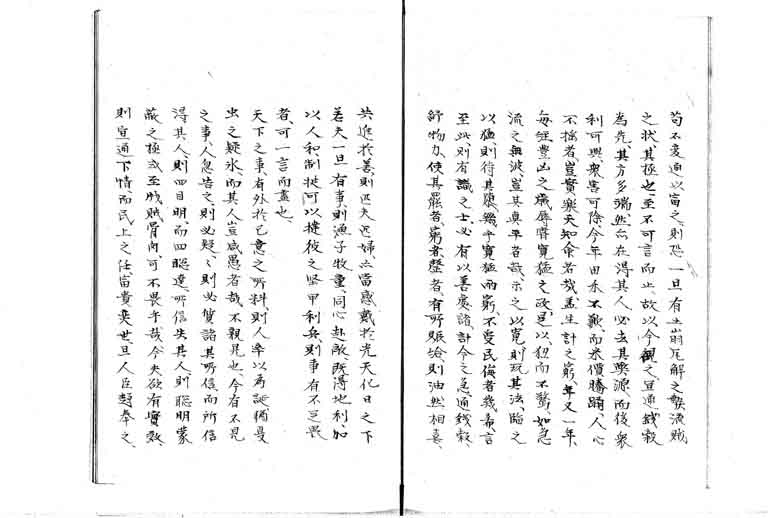 苟不变通以富之則恐一旦有土崩瓦解之
之状其極也至不可言而止故以今観之宜通銭穀
為先其方多端然亦在得其人必去其弊源而後衆
利可興衆害可除今年田禾不歉而米價騰踊人心
不揣者豈實樂天知命者哉盖生計之窮年又一年
毎經豊凶之職辟寛猛之政是以狃而不驚如急
流之無波豈其真平者哉示之以寛則玩其法臨之
以猛則得其 幾乎寛猛兩窮不変民俗者幾希言
至此則有識之士必有以善處諸計今之急通銭穀
紓物力使其罷者窮者壓者有所賑給則油然相喜
共進於善則匹夫匹婦亦當感戴於光天化日之下
善夫一旦有事則漁子牧童同心赴敵既得地利加
以人和制梃可以撻彼之堅甲利兵則事有不足畏
者可一言而盡也
天下之事有外於己意之所料則人率以為誕猶夏
虫之疑氷而其人豈咸愚者哉不親見也今有不見
之事人急告之則必疑々則必質諸其所信而所信
得其人則四目明而四聡達所信失其人則聡明蒙
蔽之極或至戕賊骨肉可不畏乎哉今夫欲有實效
則宜通下情而民上之任富貴奕世且人臣趨奉之